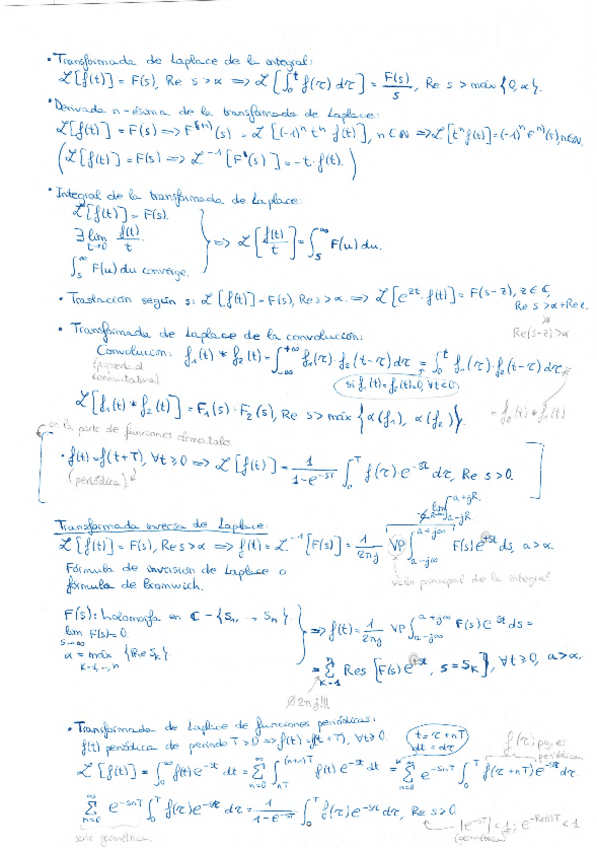 • Transformada de Laplace de la integral:
L[f(t)] = F(s), Re s > α => L[∫₀ᵗ f(τ) dτ] = F(s)/s, Re s > máx{0, α}.
• Derivada n-ésima de la transformada de Laplace:
L[f(t)] = F(s) => F⁽ⁿ⁾(s) = L[(-1)ⁿ tⁿ f(t)], n ∈ ℕ => L[tⁿ f(t)] = (-1)ⁿ Fⁿ⁾(s), n∈ℕ.
(L[f(t)] = F(s) => L⁻¹[F'(s)] = -t·f(t).)
• Integral de la transformada de Laplace:
L[f(t)] = F(s).
∃ lim t→0 f(t)/t. } => L[f(t)/t] = ∫ₛ^∞ F(u) du.
∫ₛ^∞ F(u) du converge.
• Traslación según s: L[f(t)] = F(s), Re s > α => L[e^{zt}·f(t)] = F(s-z), z ∈ ℂ,
Re s > α + Re z.
Re(s-z) > α
• Transformada de Laplace de la convolución:
Convolución: f₁(t) * f₂(t) = ∫_{-∞}^{+∞} f₁(τ)·f₂(t-τ) dτ = ∫₀ᵗ f₁(τ)·f₂(t-τ) dτ
(propiedad conmutativa)
si f₁(t) = f₂(t) = 0, ∀t<0
L[f₁(t) * f₂(t)] = F₁(s)·F₂(s), Re s > máx{α(f₁), α(f₂)}. = f₂(t) * f₁(t)
en la parte de funciones elementales
• f(t) = f(t+T), ∀t ≥ 0 => L[f(t)] = 1/(1-e^{-sT}) ∫₀ᵀ f(τ) e^{-sτ} dτ, Re s > 0.
(periódica)
lim ∫_{a-jR}^{a+jR}
Transformada inversa de Laplace:
L[f(t)] = F(s), Re s > α => f(t) = L⁻¹[F(s)] = 1/(2πj) VP ∫_{a-j∞}^{a+j∞} F(s) e^{st} ds, a > α.
Fórmula de inversión de Laplace o
fórmula de Bromwich.
valor principal de la integral
F(s): holomorfa en ℂ - {s₁, …, sₙ}
lim s→∞ F(s) = 0. } => f(t) = 1/(2πj) VP ∫_{a-j∞}^{a+j∞} F(s) e^{st} ds =
α = máx k=1,…,n {Re sₖ}
= Σ_{k=1}^{n} Res[F(s) e^{st}, s = sₖ], ∀t ≥ 0, a > α.
∅ 2πj!!!
• Transformada de Laplace de funciones periódicas:
f(t) periódica de periodo T > 0 => f(t) = f(t+T), ∀t ≥ 0.
t = τ + nT
dt = dτ
f(τ) pq es periódica
L[f(t)] = ∫₀^∞ f(t) e^{-st} dt = Σ_{n=0}^∞ ∫_{nT}^{(n+1)T} f(t) e^{-st} dt = Σ_{n=0}^∞ e^{-snT} ∫₀ᵀ f(τ+nT) e^{-sτ} dτ.
Σ_{n=0}^∞ e^{-snT} ∫₀ᵀ f(τ) e^{-sτ} dτ = 1/(1-e^{-sT}) ∫₀ᵀ f(τ) e^{-sτ} dτ, Re s > 0
serie geométrica.
|e^{-sT}| < 1; e^{-Re(s)T} < 1
(geométrica)